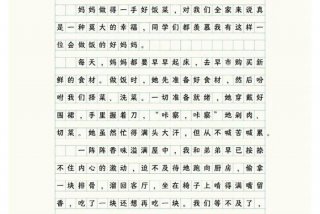 妈妈做得一手好饭菜，对我们全家来说真
是一种莫大的幸福，同学们都羡慕我有这样一
位会做饭的好妈妈。
每天，妈妈都要早早起床，去早市购买新
鲜的食材。做饭时，她先准备好食材，然后吩
咐我们择菜、洗菜。一切准备就绪，她穿戴好
围裙，手里握着刀，“咔嚓，咔嚓”地剁肉，
切菜。她虽然忙得满头大汗，但从不喊苦喊累。
一阵阵香味溢满屋中，我和弟弟早已按捺
不住内心的激动，迫不及待地跑向厨房，偷拿
一块排骨，溜回客厅，坐在椅子上啃得满嘴留
香，吃了一块还想再吃一块。我们等不及了，